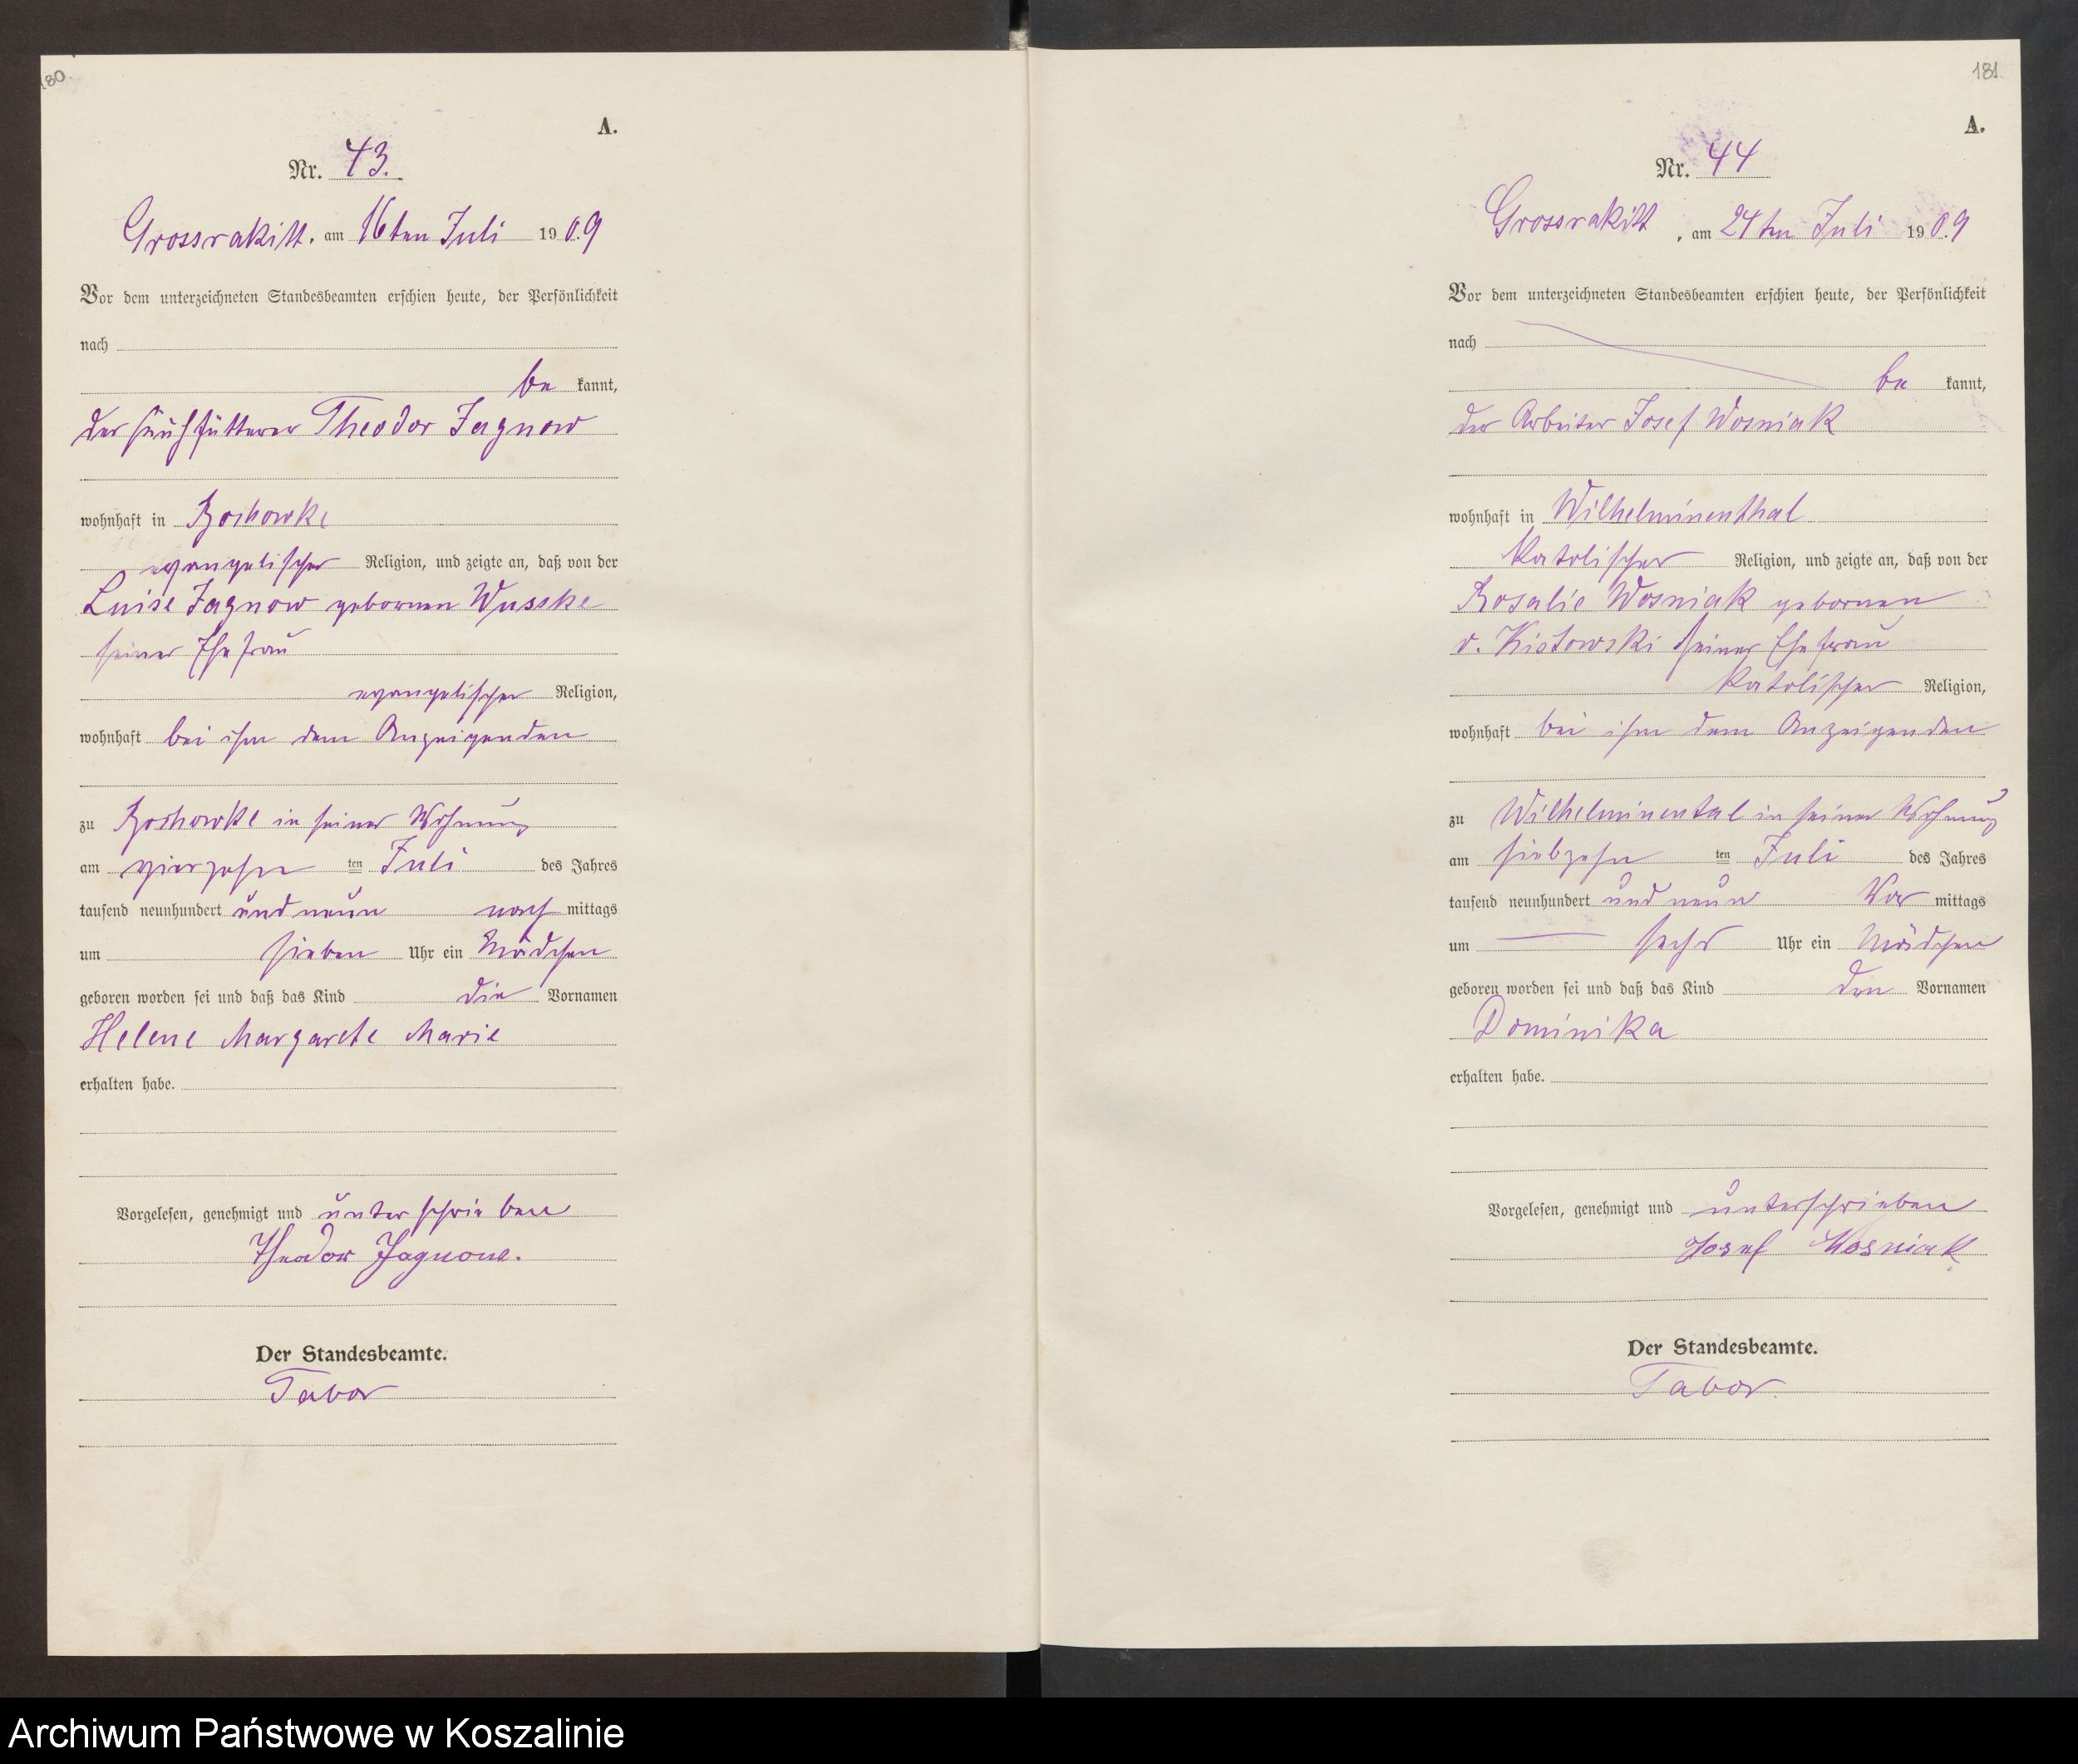 180.
A.
Nr. 43.
Grossrakitt, am 16ten Juli 1909
Vor dem unterzeichneten Standesbeamten erschien heute, der Persönlichkeit
nach
be kannt,
der Theodor Jagnow
wohnhaft in
evangelischer Religion, und zeigte an, daß von der
Luise Jagnow gebornen Wusske
seiner Ehefrau
evangelischer Religion,
wohnhaft bei ihm dem Anzeigenden
zu in seiner Wohnung
am vierzehn ten Juli des Jahres
tausend neunhundert und neun nach mittags
um sieben Uhr ein Mädchen
geboren worden sei und daß das Kind die Vornamen
Helene Margarete Marie
erhalten habe.
Vorgelesen, genehmigt und unterschrieben
Theodor Jagnow.
Der Standesbeamte.
Tabor
181
A.
Nr. 44
Grossrakitt, am 24ten Juli 1909
Vor dem unterzeichneten Standesbeamten erschien heute, der Persönlichkeit
nach
be kannt,
der Arbeiter Josef Wosniak
wohnhaft in Wilhelminenthal
katolischer Religion, und zeigte an, daß von der
Rosalie Wosniak gebornen
v. Kistowski seiner Ehefrau
katolischer Religion,
wohnhaft bei ihm dem Anzeigenden
zu Wilhelminental in seiner Wohnung
am siebzehn ten Juli des Jahres
tausend neunhundert und neun Vor mittags
um sechs Uhr ein Mädchen
geboren worden sei und daß das Kind den Vornamen
Dominika
erhalten habe.
Vorgelesen, genehmigt und unterschrieben
Josef Wosniak
Der Standesbeamte.
Tabor.
Archiwum Państwowe w Koszalinie